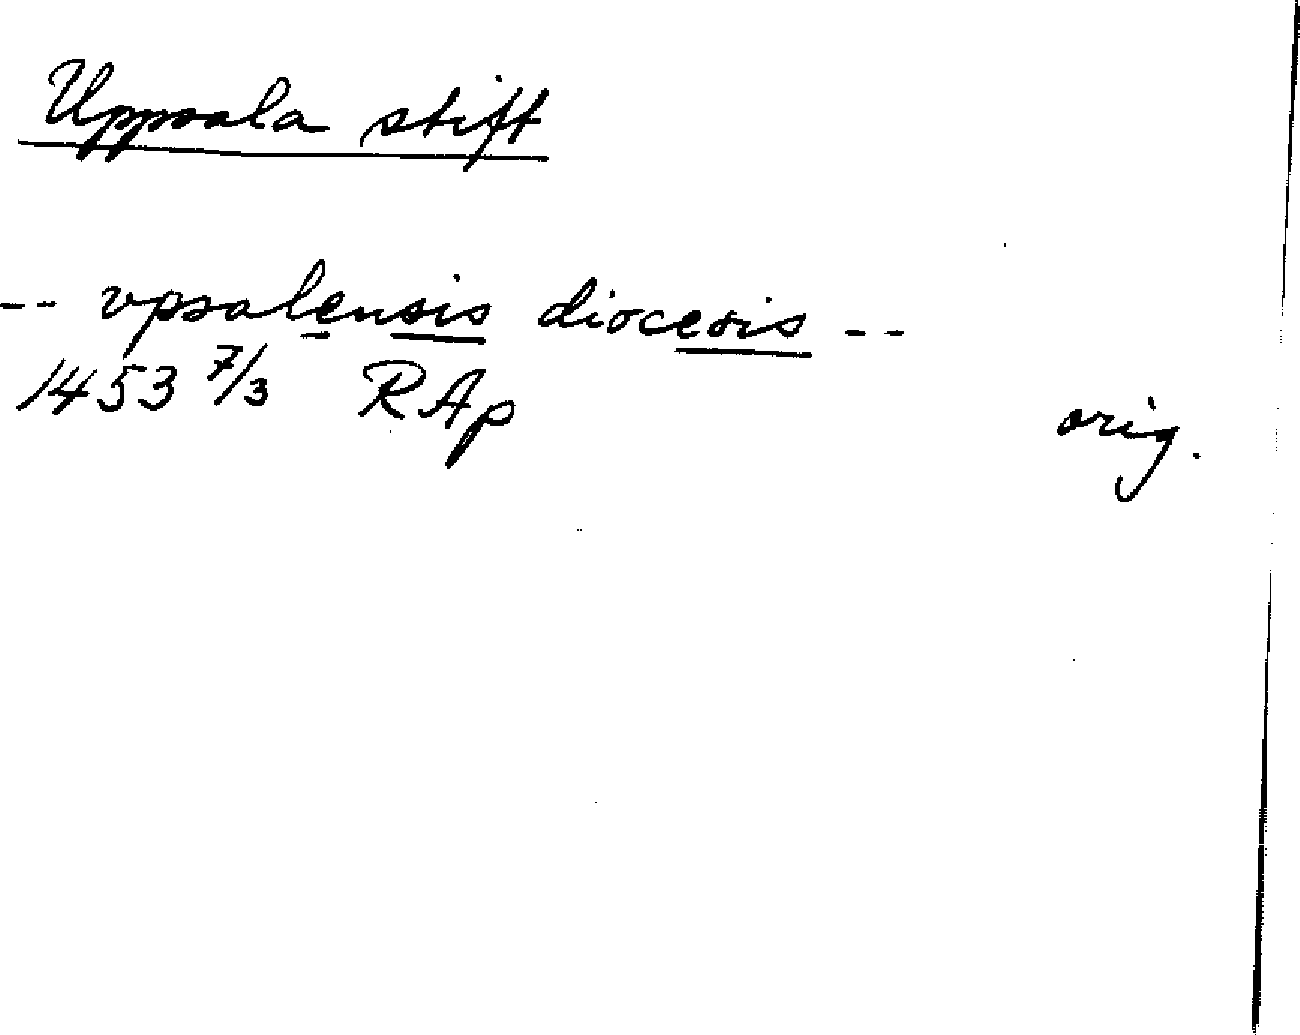 Uppsala stift
-- vpsalensis diocesis --
1453 7/3 RAp
orig.